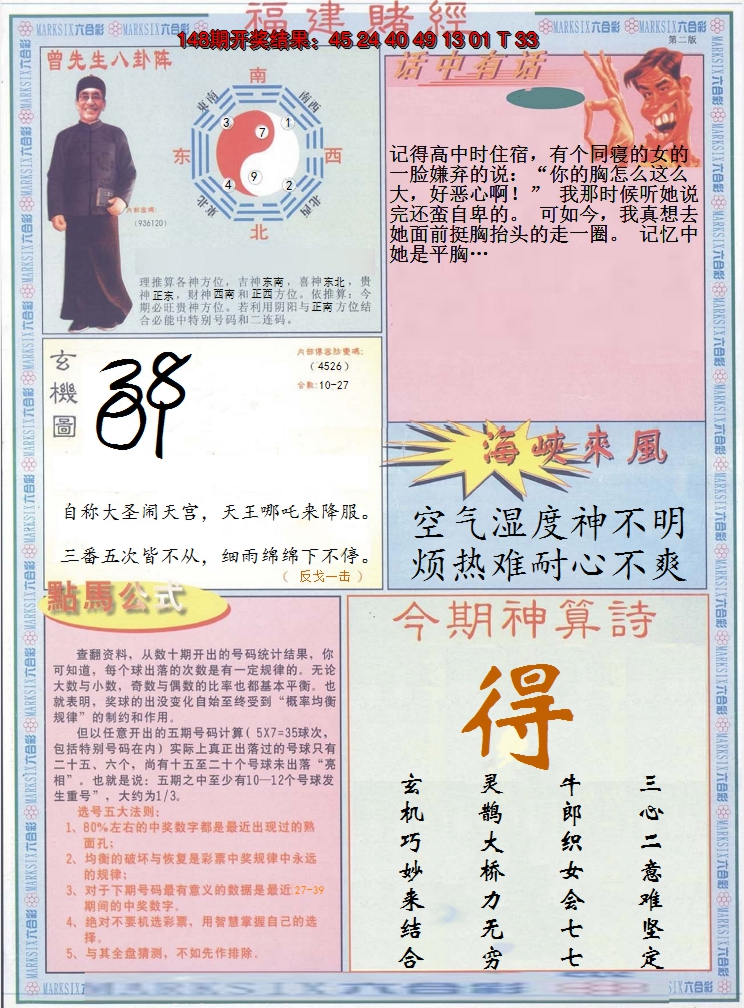 福建賭經
148期开奖结果：45 24 40 49 13 01 T 33
第二版
MARKSIX六合彩
曾先生八卦阵
南
东南
南西
3
7
1
东
西
4
9
2
东北
北西
北
内部密碼:
(936120)
理推算各神方位，吉神东南，喜神东北，贵
神正东，财神西南和正西方位。依推算：今
期必旺贵神方位。若利用阴阳与正南方位结
合必能中特别号码和二连码。
话中有话
记得高中时住宿，有个同寝的女的
一脸嫌弃的说：“你的胸怎么这么
大，好恶心啊！” 我那时候听她说
完还蛮自卑的。 可如今，我真想去
她面前挺胸抬头的走一圈。 记忆中
她是平胸…
玄機圖
（4526）
合数:10-27
自称大圣闹天宫，天王哪吒来降服。
三番五次皆不从，细雨绵绵下不停。
（ 反戈一击 ）
海峽來風
空气湿度神不明
烦热难耐心不爽
點馬公式
查翻资料，从数十期开出的号码统计结果，你
可知道，每个球出落的次数是有一定规律的。无论
大数与小数，奇数与偶数的比率也都基本平衡。也
就表明，奖球的出没变化自始至终受到“概率均衡
规律”的制约和作用。
但以任意开出的五期号码计算( 5X7=35球次，
包括特别号码在内) 实际上真正出落过的号球只有
二十五、六个，尚有十五至二十个号球未出落“亮
相”。也就是说：五期之中至少有10—12个号球发
生重号”，大约为1/3。
选号五大法则:
1、80%左右的中奖数字都是最近出现过的熟
面孔;
2、均衡的破坏与恢复是彩票中奖规律中永远
的规律;
3、对于下期号码最有意义的数据是最近27-39
期间的中奖数字。
4、绝对不要机选彩票，用智慧掌握自己的选
择。
5、与其全盘猜测，不如先作排除。
今期神算詩
得
三心二意难坚定
牛郎织女会七七
灵鹊大桥力无穷
玄机巧妙来结合